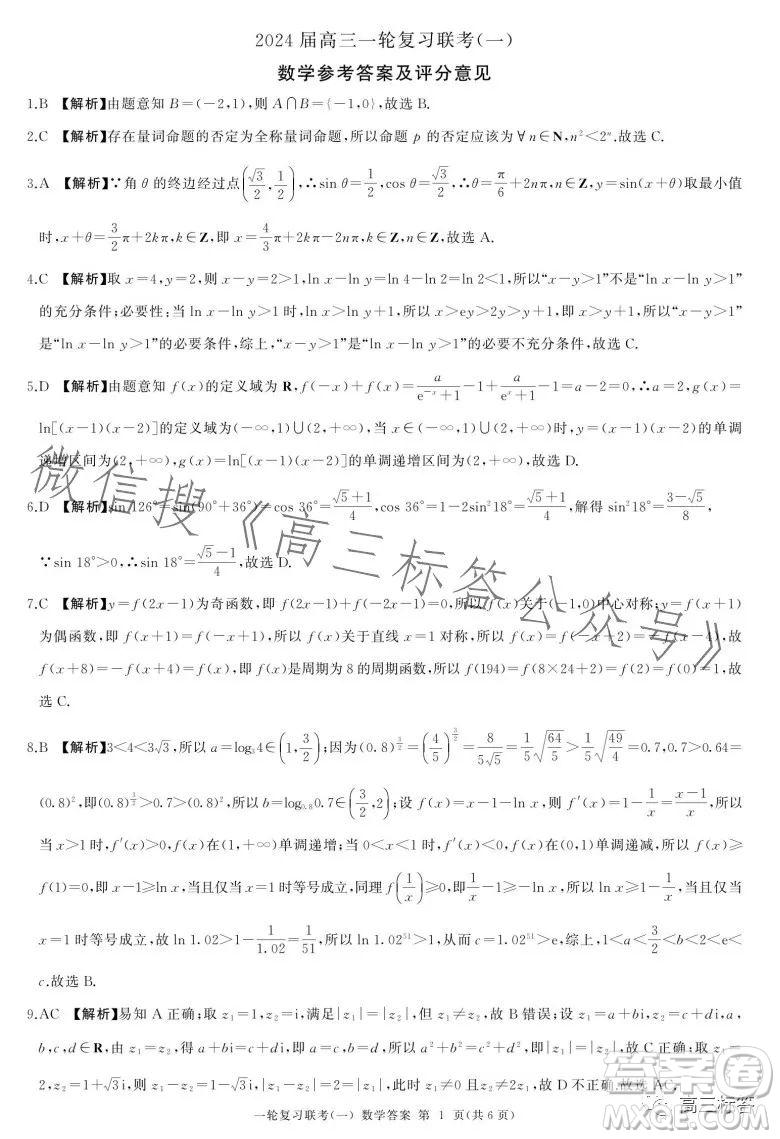 2024 届高三一轮复习联考(一)
数学参考答案及评分意见
1.B 【解析】由题意知 B=(-2,1),则 A∩B={-1,0},故选 B.
2.C 【解析】存在量词命题的否定为全称量词命题,所以命题 p 的否定应该为 ∀n∈N,n²<2ⁿ.故选 C.
3.A 【解析】∵角 θ 的终边经过点(√3/2,1/2),∴sin θ=1/2,cos θ=√3/2,∴θ=π/6+2nπ,n∈Z,y=sin(x+θ)取最小值
时,x+θ=3/2π+2kπ,k∈Z,即 x=4/3π+2kπ-2nπ,k∈Z,n∈Z,故选 A.
4.C 【解析】取 x=4,y=2,则 x-y=2>1,ln x-ln y=ln 4-ln 2=ln 2<1,所以“x-y>1”不是“ln x-ln y>1”
的充分条件;必要性:当 ln x-ln y>1 时,ln x>ln y+1,所以 x>ey>2y>y+1,即 x>y+1,所以“x-y>1”
是“ln x-ln y>1”的必要条件,综上,“x-y>1”是“ln x-ln y>1”的必要不充分条件,故选 C.
5.D 【解析】由题意知 f(x)的定义域为 R,f(-x)+f(x)=a/(e⁻ˣ+1)-1+a/(eˣ+1)-1=a-2=0,∴a=2,g(x)=
ln[(x-1)(x-2)]的定义域为(-∞,1)∪(2,+∞),当 x∈(-∞,1)∪(2,+∞)时,y=(x-1)(x-2)的单调
递增区间为(2,+∞),g(x)=ln[(x-1)(x-2)]的单调递增区间为(2,+∞),故选 D.
6.D 【解析】sin 126°=sin(90°+36°)=cos 36°=(√5+1)/4,cos 36°=1-2sin²18°=(√5+1)/4,解得 sin²18°=(3-√5)/8,
∵sin 18°>0,∴sin 18°=(√5-1)/4,故选 D.
7.C 【解析】y=f(2x-1)为奇函数,即 f(2x-1)+f(-2x-1)=0,所以 f(x)关于(-1,0)中心对称;y=f(x+1)
为偶函数,即 f(x+1)=f(-x+1),所以 f(x)关于直线 x=1 对称,所以 f(x)=f(-x+2)=-f(x-4),故
f(x+8)=-f(x+4)=f(x),即 f(x)是周期为 8 的周期函数,所以 f(194)=f(8×24+2)=f(2)=f(0)=1,故
选 C.
8.B 【解析】3<4<3√3,所以 a=log₃4∈(1,3/2);因为(0.8)^(3/2)=(4/5)^(3/2)=8/(5√5)=1/5√(64/5)>1/5√(49/4)=0.7,0.7>0.64=
(0.8)²,即(0.8)^(3/2)>0.7>(0.8)²,所以 b=log₀.₈0.7∈(3/2,2);设 f(x)=x-1-ln x,则 f′(x)=1-1/x=(x-1)/x,所以
当 x>1 时,f′(x)>0,f(x)在(1,+∞)单调递增;当 0<x<1 时,f′(x)<0,f(x)在(0,1)单调递减,所以 f(x)≥
f(1)=0,即 x-1≥ln x,当且仅当 x=1 时等号成立,同理 f(1/x)≥0,即 1/x-1≥-ln x,所以 ln x≥1-1/x,当且仅当
x=1 时等号成立,故 ln 1.02>1-1/1.02=1/51,所以 ln 1.02⁵¹>1,从而 c=1.02⁵¹>e,综上,1<a<3/2<b<2<e<
c.故选 B.
9.AC 【解析】易知 A 正确;取 z₁=1,z₂=i,满足|z₁|=|z₂|,但 z₁≠z₂,故 B 错误;设 z₁=a+bi,z₂=c+di,a,
b,c,d∈R,由 z₁=z₂,得 a+bi=c+di,即 a=c,b=d,所以 a²+b²=c²+d²,即|z₁|=|z₂|,故 C 正确;取 z₁=
2,z₂=1+√3i,则 z₁-z₂=1-√3i,所以|z₁|=|z₂|=|z₁-z₂|,此时 z₁≠0 且 z₂≠0,故 D 不正确.故选 AC.
一轮复习联考(一) 数学答案 第 1 页(共 6 页)
微信搜《高三标答公众号》
高三标答